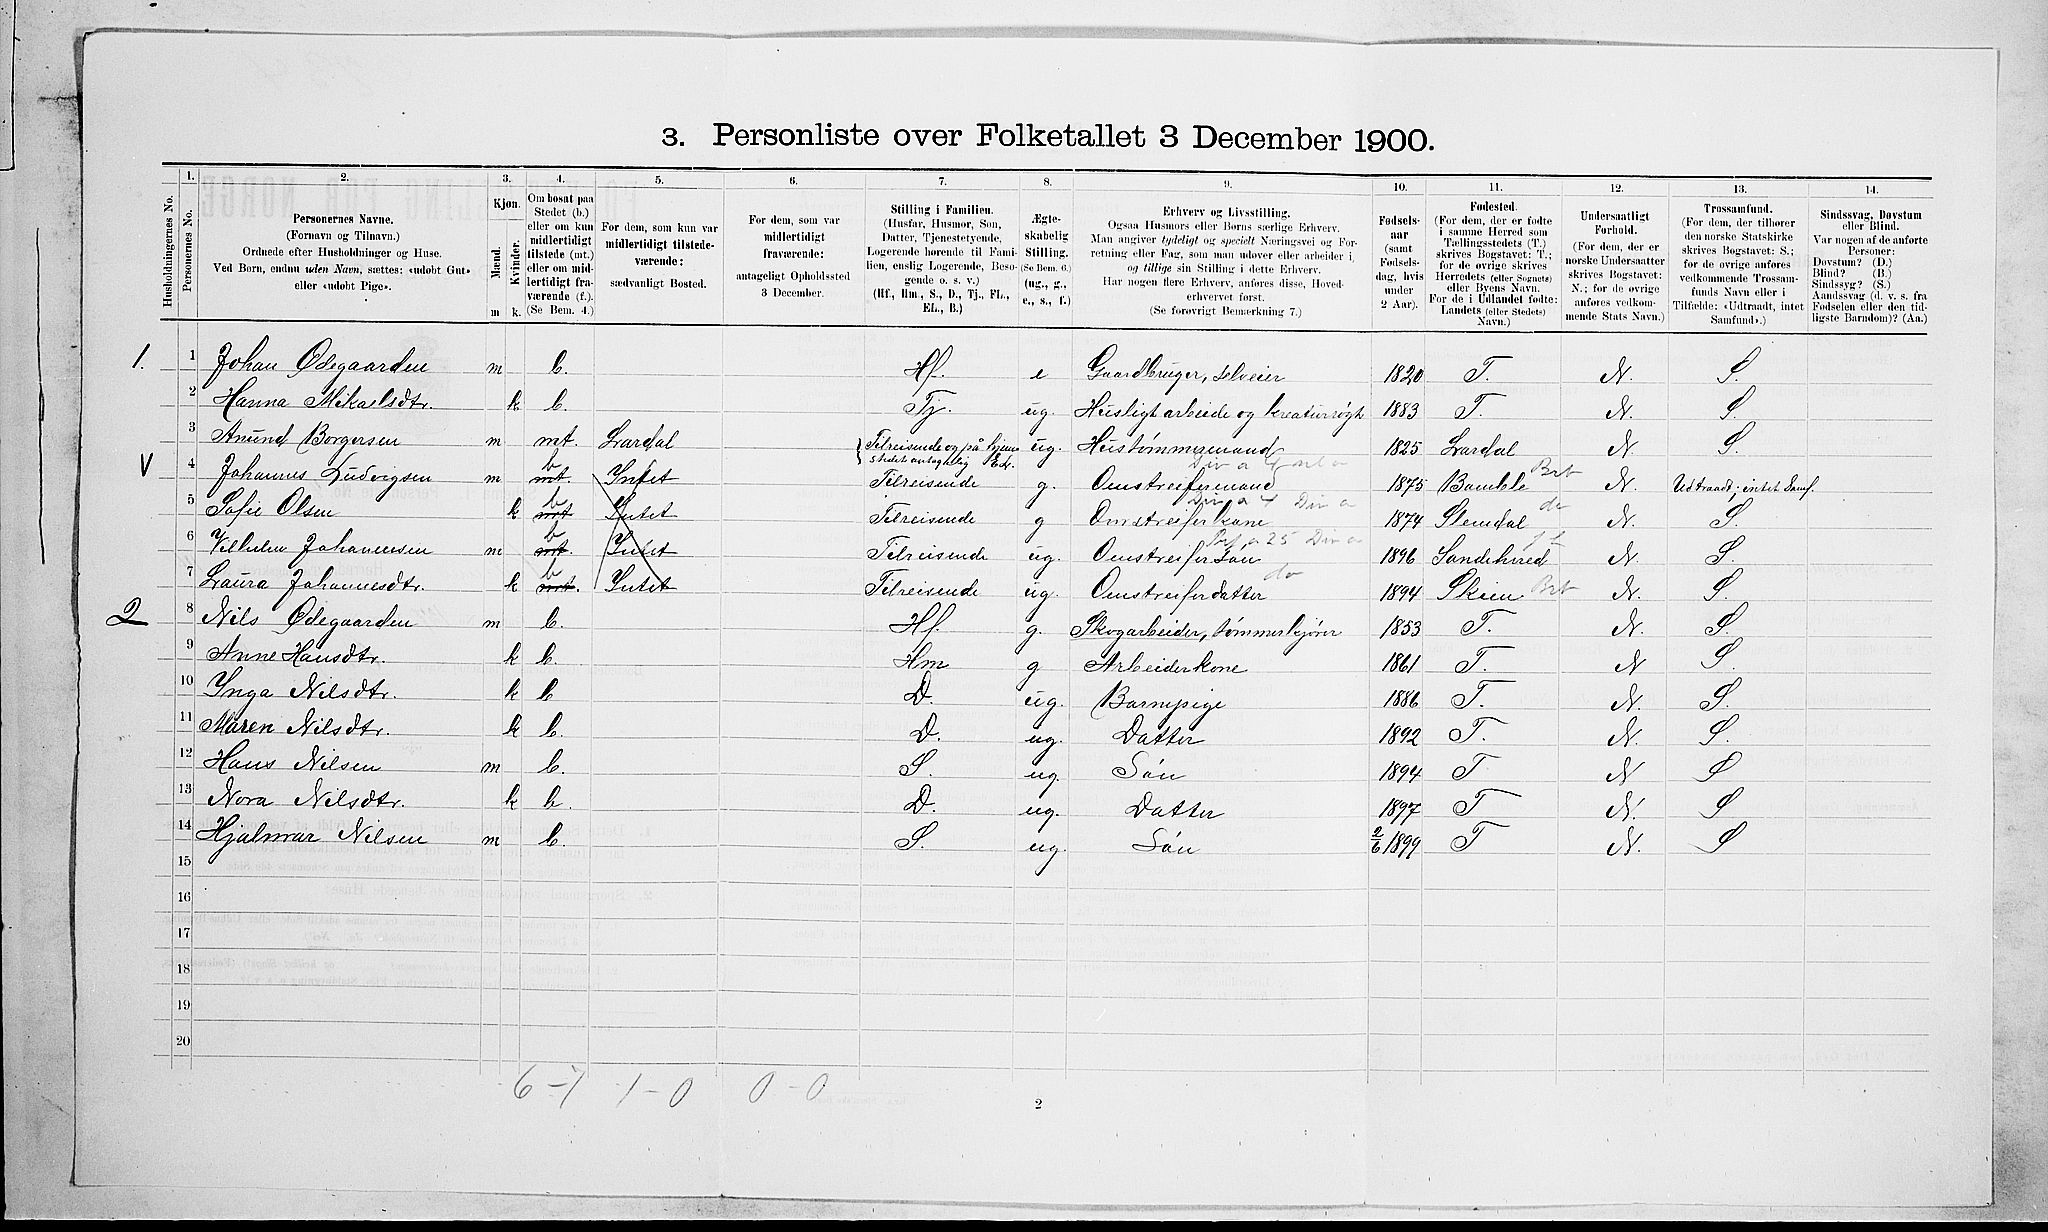 3. Personliste over Folketallet 3 December 1900.
Husholdningernes No.
1. Personernes No.
2. Personernes Navne.
(Fornavn og Tilnavn.)
Ordnede efter Husholdninger og Huse.
Ved Børn, endnu uden Navn, sættes: «udobt Gut»
eller «udobt Pige».
3. Kjøn.
Mænd. Kvinder.
m k.
4. Om bosat paa
Stedet (b.)
eller om kun
midlertidigt
tilstede (mt.)
eller om mid-
lertidigt fra-
værende (f.).
(Se Bem. 4.)
5. For dem, som kun var
midlertidigt tilstede-
værende:
sædvanligt Bosted.
6. For dem, som var
midlertidigt
fraværende:
antageligt Opholdssted
3 December.
7. Stilling i Familien.
(Husfar, Husmor, Søn,
Datter, Tjenestetyende,
Logerende hørende til Fami-
lien, enslig Logerende, Besø-
gende o. s. v.)
(Hf., Hm., S., D., Tj., FL.,
EL., B.)
8. Ægte-
skabelig
Stilling.
(Se Bem. 6.)
(ug., g.,
e., s., f.)
9. Erhverv og Livsstilling.
Ogsaa Husmors eller Børns særlige Erhverv.
Man angiver tydeligt og specielt Næringsvei og For-
retning eller Fag, som man udøver eller arbeider i,
og tillige sin Stilling i dette Erhverv.
Har nogen flere Erhverv, anføres disse, Hoved-
erhvervet først.
(Se forøvrigt Bemærkning 7.)
10. Fødsels-
aar
(samt
Fødsels-
dag, hvis
under
2 Aar).
11. Fødested.
(For dem, der er fødte
i samme Herred som
Tællingsstedets (T.)
skrives Bogstavet: T.;
for de øvrige skrives
Herredets (eller Sognets)
eller Byens Navn.
For de i Udlandet fødte:
Landets (eller Stedets)
Navn.)
12. Undersaatligt
Forhold.
(For dem, der er
norske Undersaatter
skrives Bogstavet:
N.; for de øvrige
anføres vedkom-
mende Stats Navn.)
13. Trossamfund.
(For dem, der tilhører
den norske Statskirke
skrives Bogstavet: S.;
for de øvrige anføres
vedkommende Trossam-
funds Navn eller i
Tilfælde: «Udtraadt, intet
Samfund».)
14. Sindssvag, Døvstum
eller Blind.
Var nogen af de anførte
Personer:
Døvstum? (D.)
Blind? (B.)
Sindssyg? (S.)
Aandssvag (d. v. s. fra
Fødselen eller den tid-
ligste Barndom)? (Aa.)
1. 1 Johan Ødegaarden m b. Hf. e Gaardbruger, selveier 1820 T. N. S.
2 Hanna Mikaelsdtr. k b. Tj. ug. Husligt arbeide og kreaturrøgt 1883 T. N. S.
3 Anund Borgersen m mt. Lardal Tilreisende og på hjem- stedet antagelig EL. ug. Hustømmermand 1825 Lardal N. S.
V 4 Johannes Ludvigsen m b mt. Intet Tilreisende g. Omstreifermand 1875 Bamble Brt N. Udtraadt; intet Samf.
5 Sofie Olsen k b mt Intet Tilreisende g Omstreiferkone 1874 Slemdal do N. S.
6 Vilhelm Johannessen m b mt. Intet Tilreisende ug. Omstreifer søn 1896 Sandeherred N. S.
7 Laura Johannesdtr. k b mt. Intet Tilreisende ug. Omstreiferdatter do 1894 Skien Brt N. S.
2 8 Nils Ødegaarden m b. Hf. g. Skogarbeider, tømmerkjører 1853 T. N. S.
9 Anne Hansdtr. k b. Hm g Arbeiderkone 1861 T. N S.
10 Inga Nilsdtr. k b D. ug. Barnepige 1886 T. N. S.
11 Maren Nilsdtr. k b. D. ug. Datter 1892 T. N. S.
12 Hans Nilsen m b. S. ug. Søn 1894 T N S
13 Nora Nilsdtr. k b. D. ug. Datter 1897 T N. S
14 Hjalmar Nilsen m b. S. ug. Søn 2/6 1899 T N. S
15
16
17
18
19
20
6-7 1-0 0-0
2